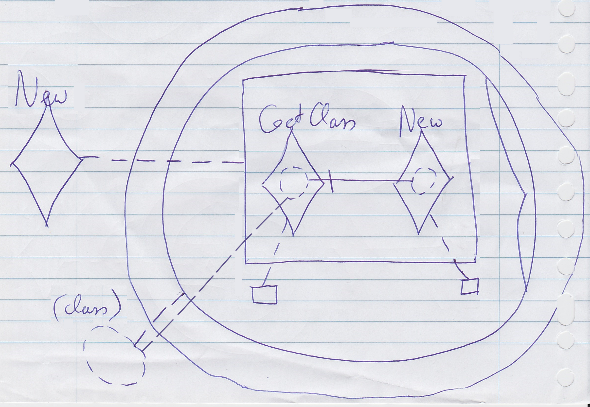 New
GetClass New
(class)